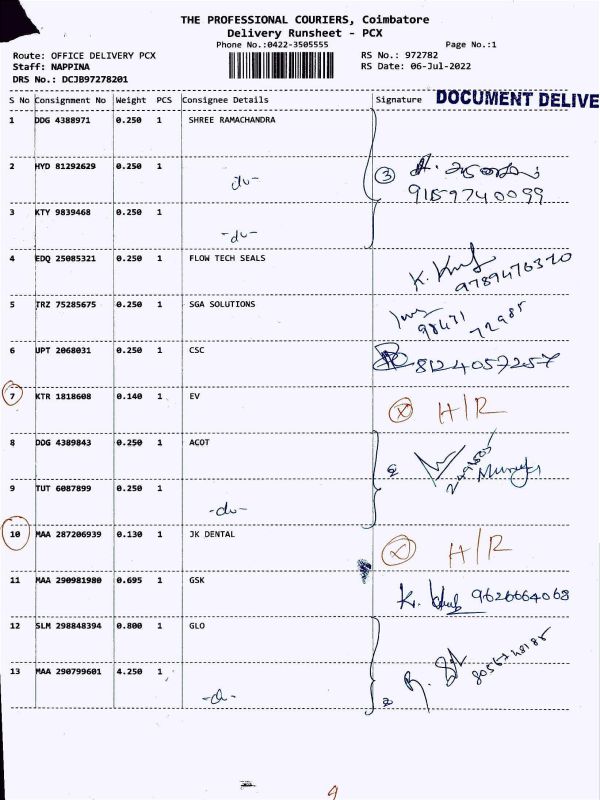 THE PROFESSIONAL COURIERS, Coimbatore
Delivery Runsheet - PCX
Phone No.:0422-3505555
Page No.:1
Route: OFFICE DELIVERY PCX
RS No.: 972782
Staff: NAPPINA
RS Date: 06-Jul-2022
DRS No.: DCJB97278201
S No Consignment No Weight PCS Consignee Details Signature DOCUMENT DELIVE
1 DDG 4388971 0.250 1 SHREE RAMACHANDRA
2 HYD 81292629 0.250 1 -do- 3
9159740099
3 KTY 9839468 0.250 1 -do-
4 EDQ 25085321 0.250 1 FLOW TECH SEALS
9789476320
5 TRZ 75285675 0.250 1 SGA SOLUTIONS
98431
72985
6 UPT 2068031 0.250 1 CSC 8124057257
7 KTR 1818608 0.140 1 EV X H/R
8 DDG 4389843 0.250 1 ACOT
9 TUT 6087899 0.250 1 -do-
10 MAA 287206939 0.130 1 JK DENTAL X H/R
11 MAA 290981980 0.695 1 GSK
9626664068
12 SLM 298848394 0.800 1 GLO
13 MAA 290799601 4.250 1 -do-